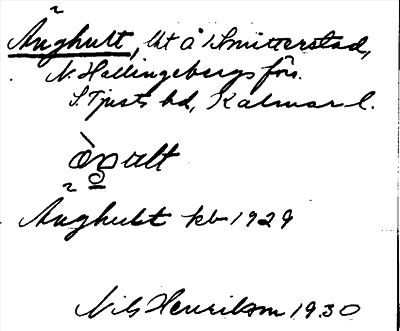 Ånghult, lht å Smitterstad,
N. Hallingebergs förs.
S. Tjusts hd, Kalmar l.
Ånghult kb 1929
Nils Henrikson 1930